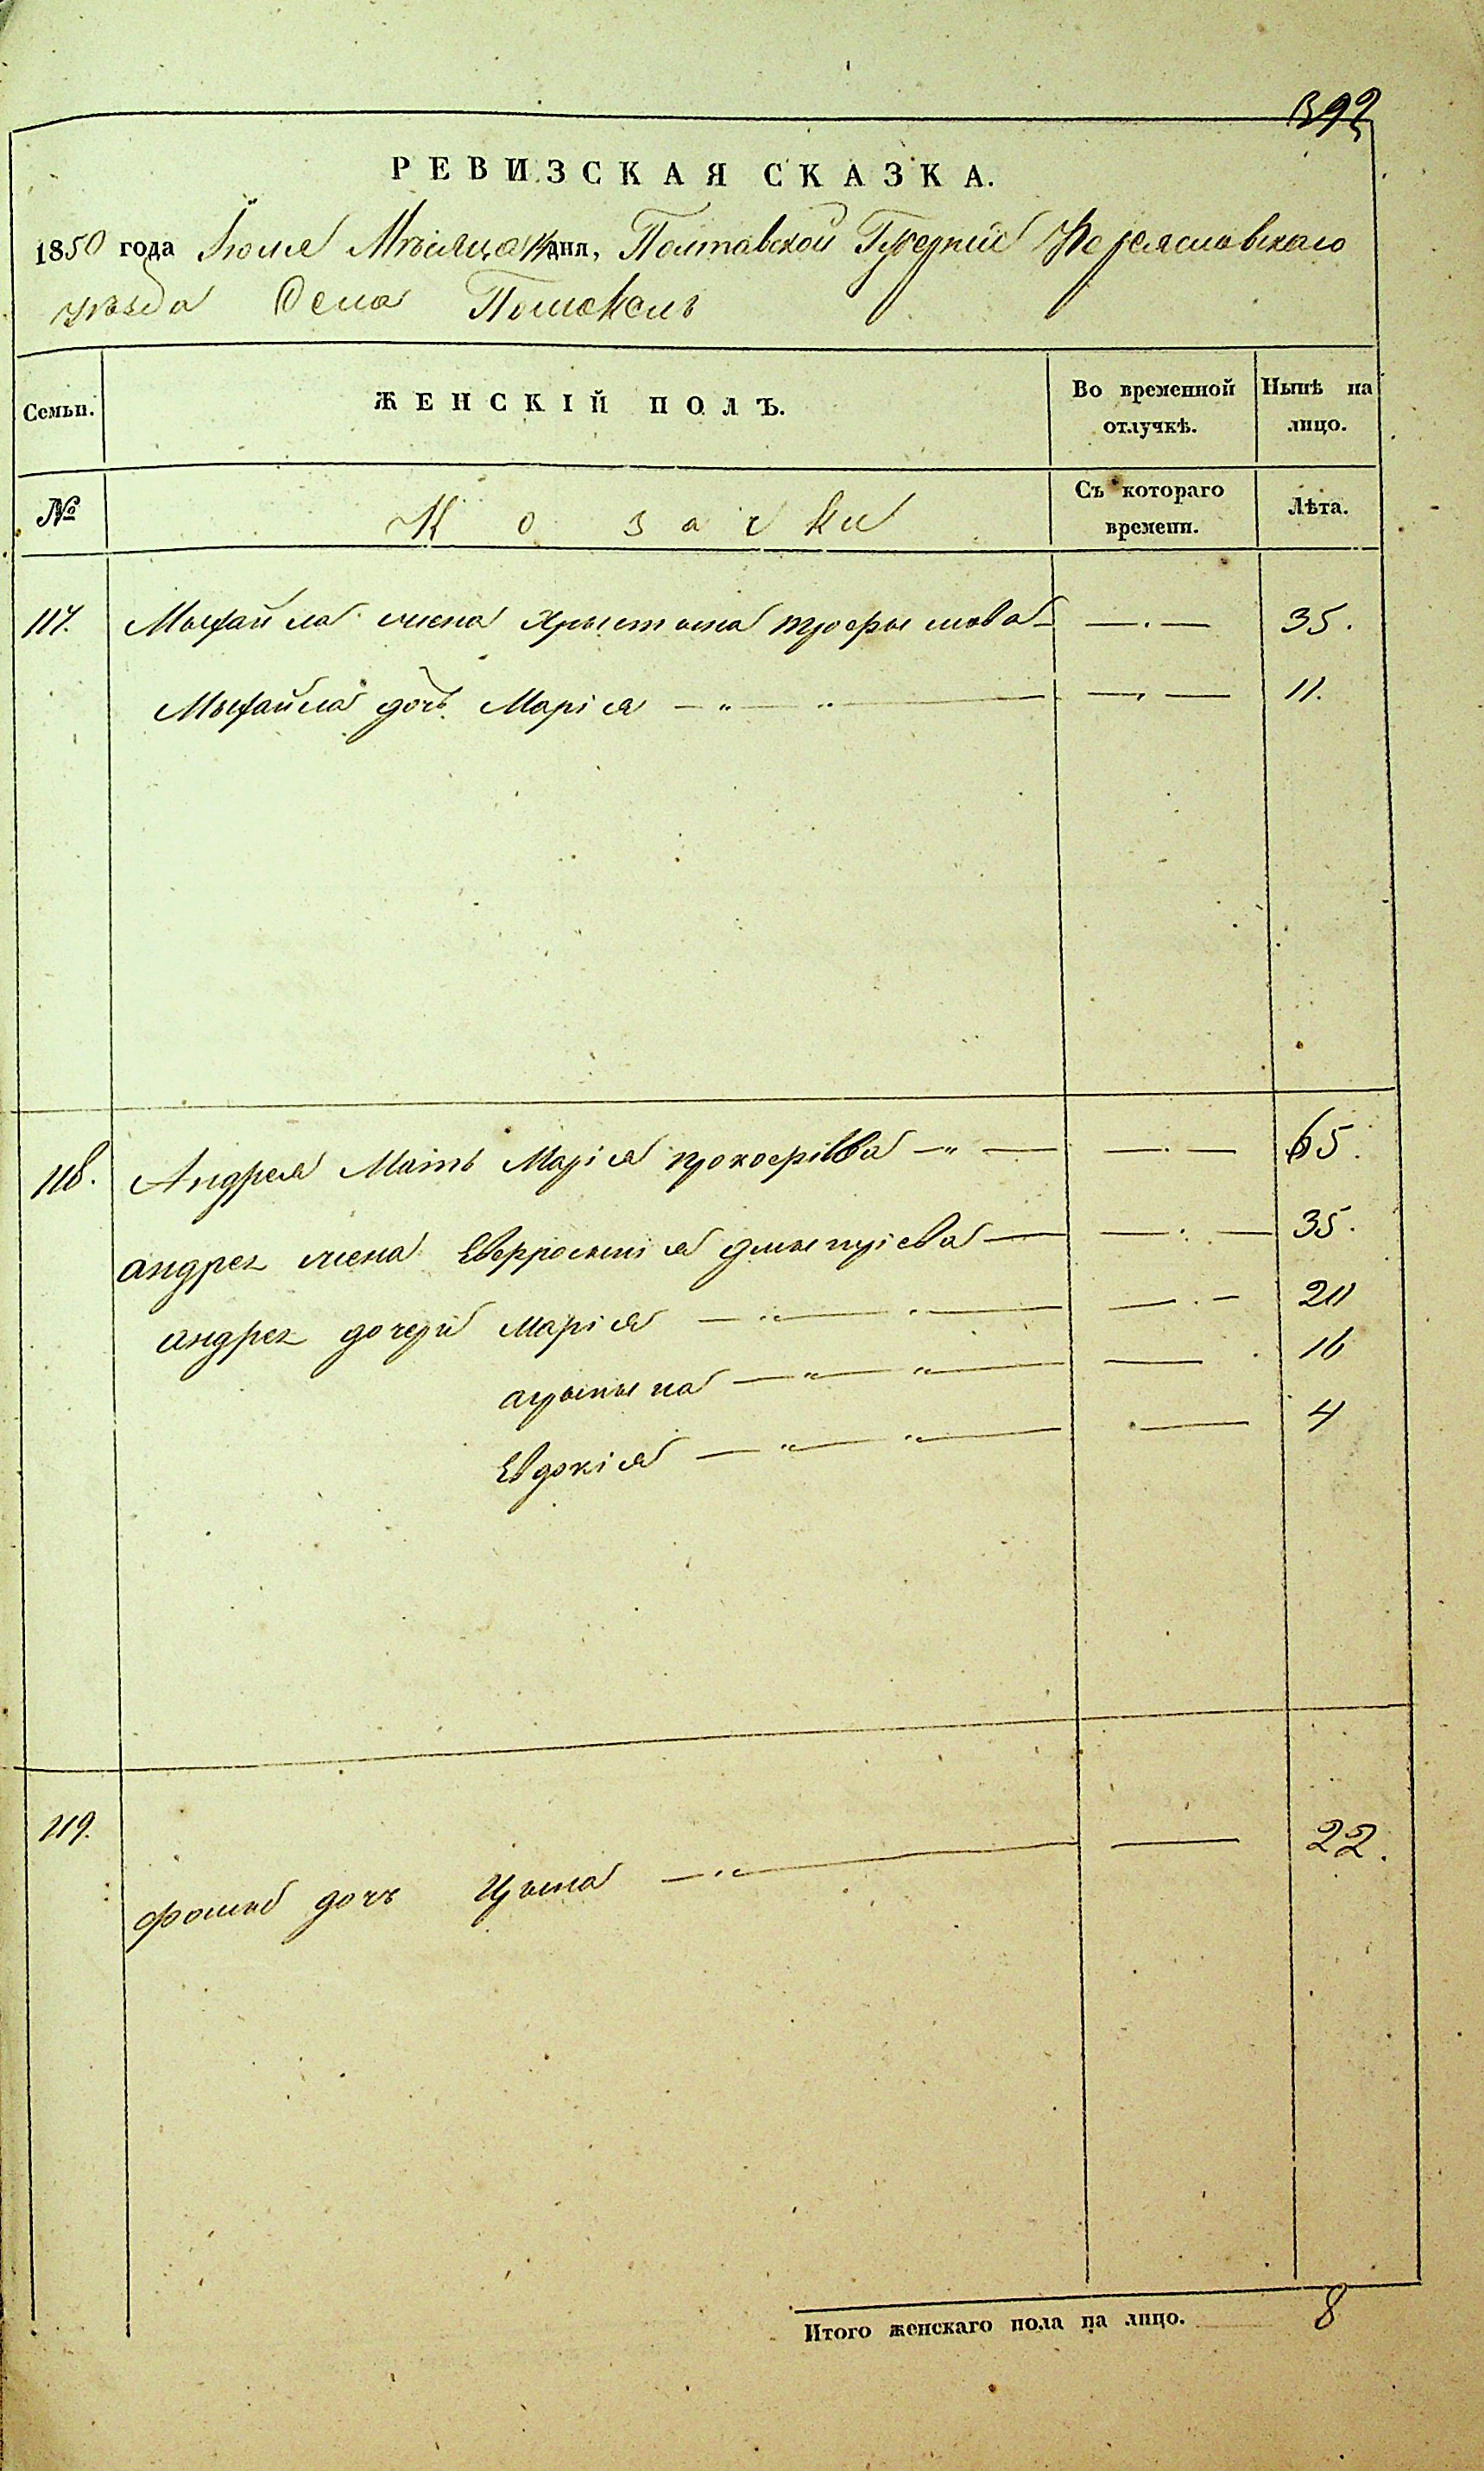 392
РЕВИЗСКАЯ СКАЗКА.
1850 года Июля Мѣсяца дня, Полтавской Губерніи Переяславскаго
уѣзда Села Помокель
Семьи. ЖЕНСКІЙ ПОЛЪ. Во временной отлучкѣ. Нынѣ на лицо.
№ Козачки Съ котораго времени. Лѣта.
117. Мыхайла жена Хрыстына трофымова — . — 35.
Мыхайла дочь Марія — „ — „ — — . — 11.
118. Андрея Мать Марія прокофіева — „ — — . — 65.
андрея жена Евфросынія дмытріева — — . — 35.
андрея дочери Марія — „ — „ — — . — 20
агрыпына — „ — „ — — . 16
Евдокія — „ — „ — — 4
119.
фомы дочь Ирына — „ — — 22.
Итого женскаго пола на лицо. 8